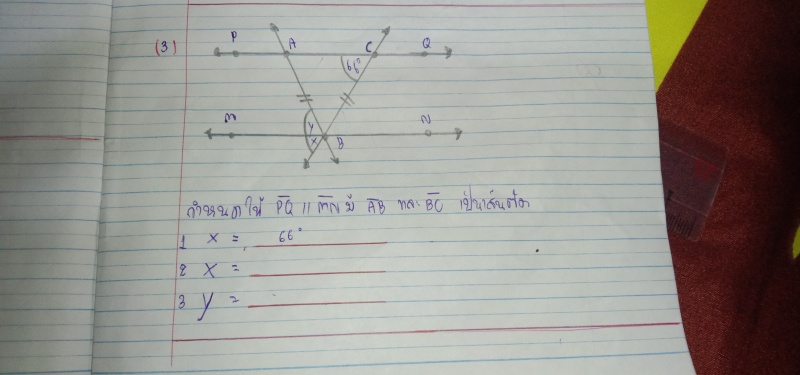 (3)
P A C Q
66°
M Y B N
X
กำหนดให้ PQ // MN มี AB และ BC เป็นเส้นตัด
1 X = 66°
2 X =
3 Y =